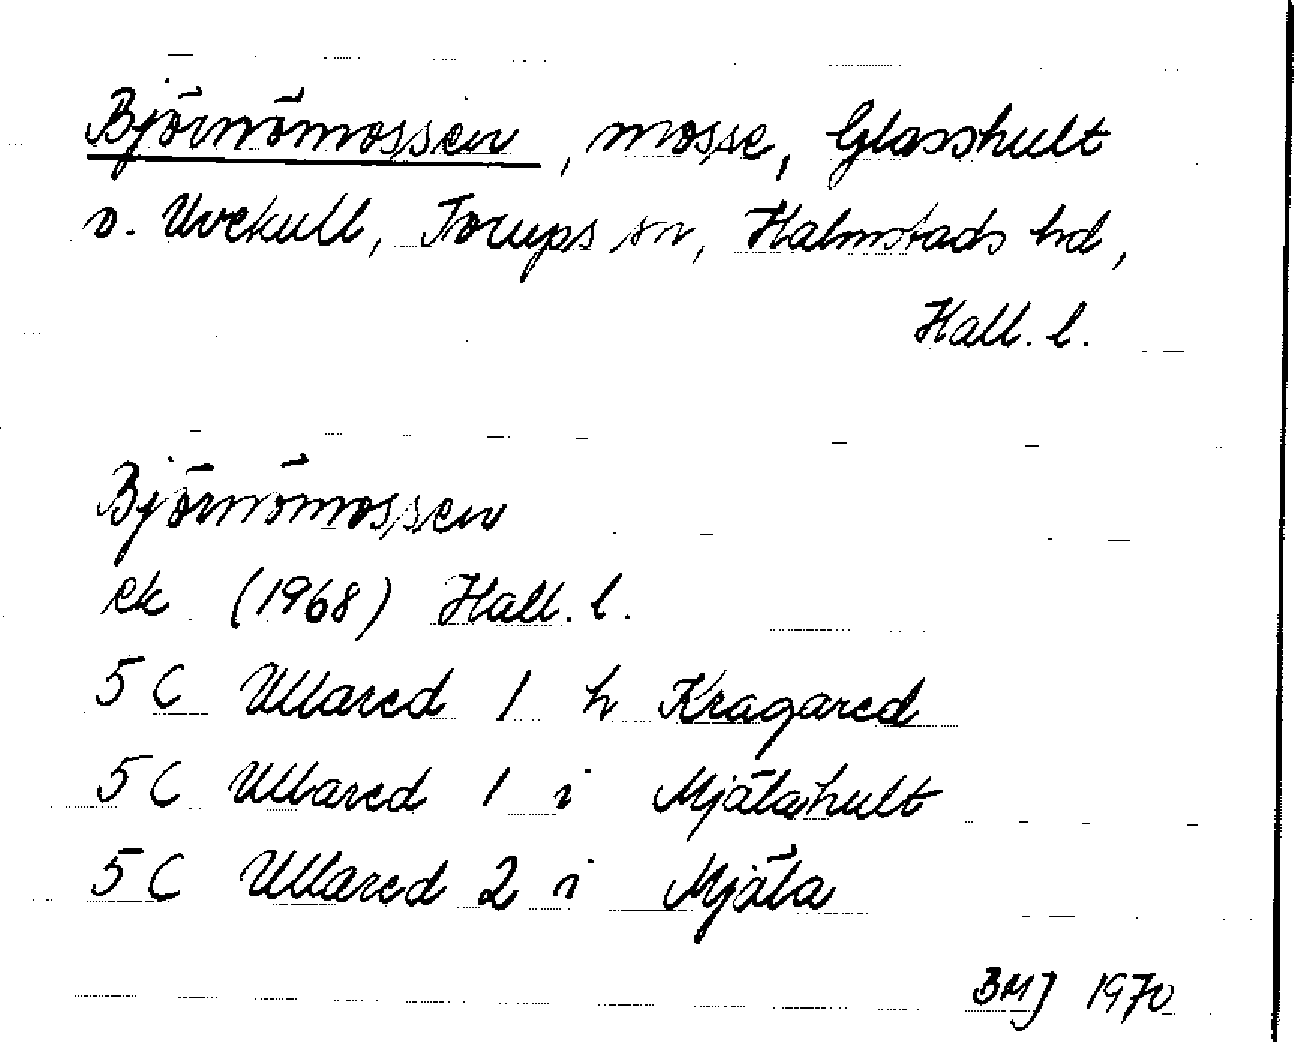 Björnömossen, mosse, Glasshult
o. Uvekull, Torups sn, Halmstads hd,
Hall. l.
Björnömossen
ek (1968) Hall. l.
5 C Ullared 1 h Kragared
5 C Ullared 1 i Mjälahult
5 C Ullared 2 i Mjäla
BMJ 1970